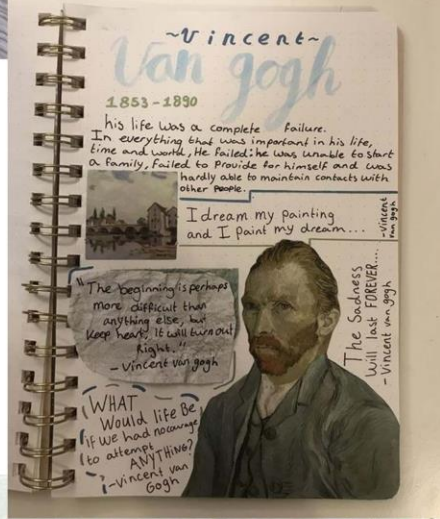 ~Vincent~
Van gogh
1853-1890
his life was a complete failure.
In everything that was important in his life,
time and worth, He failed: he was unable to start
a family, failed to provide for himself and was
hardly able to maintain contacts with
other people.
I dream my painting
and I paint my dream...
-Vincent
van gogh
"The beginning is perhaps
more difficult than
anything else, but
keep heart, it will turn out
Right."
- Vincent van gogh
The Sadness
will last FOREVER....
- Vincent van gogh
WHAT
Would life Be
if we had no courage
to attempt
ANYTHING?
-Vincent van
Gogh